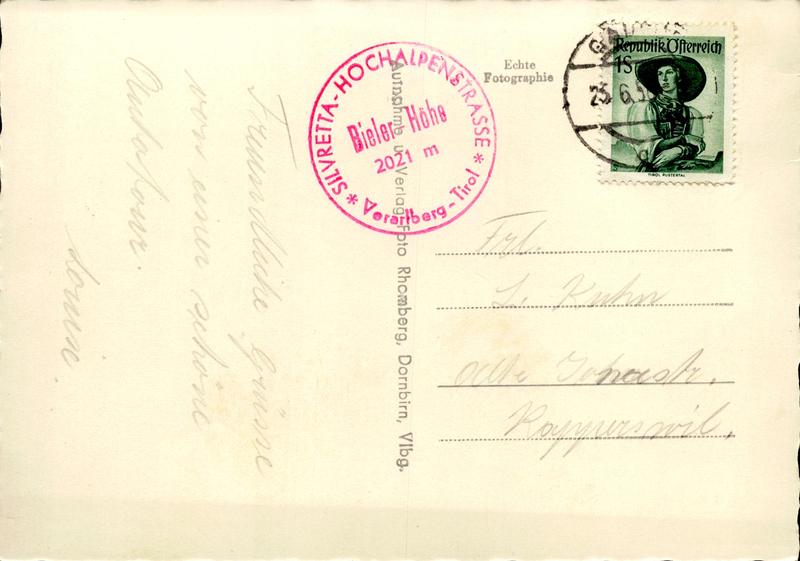 Freundliche Grüsse
von einer schöne
Autotour.
Louise.
SILVRETTA-HOCHALPENSTRASSE
Bieler Höhe
2021 m
* Vorarlberg - Tirol *
Aufnahme u. Verlag Foto Rhomberg, Dornbirn, Vlbg.
Echte
Fotographie
Republik Österreich
1S
TIROL PUSTERTAL
25.6.5
Frl.
L. Kuhn
alte
Rapperswil.